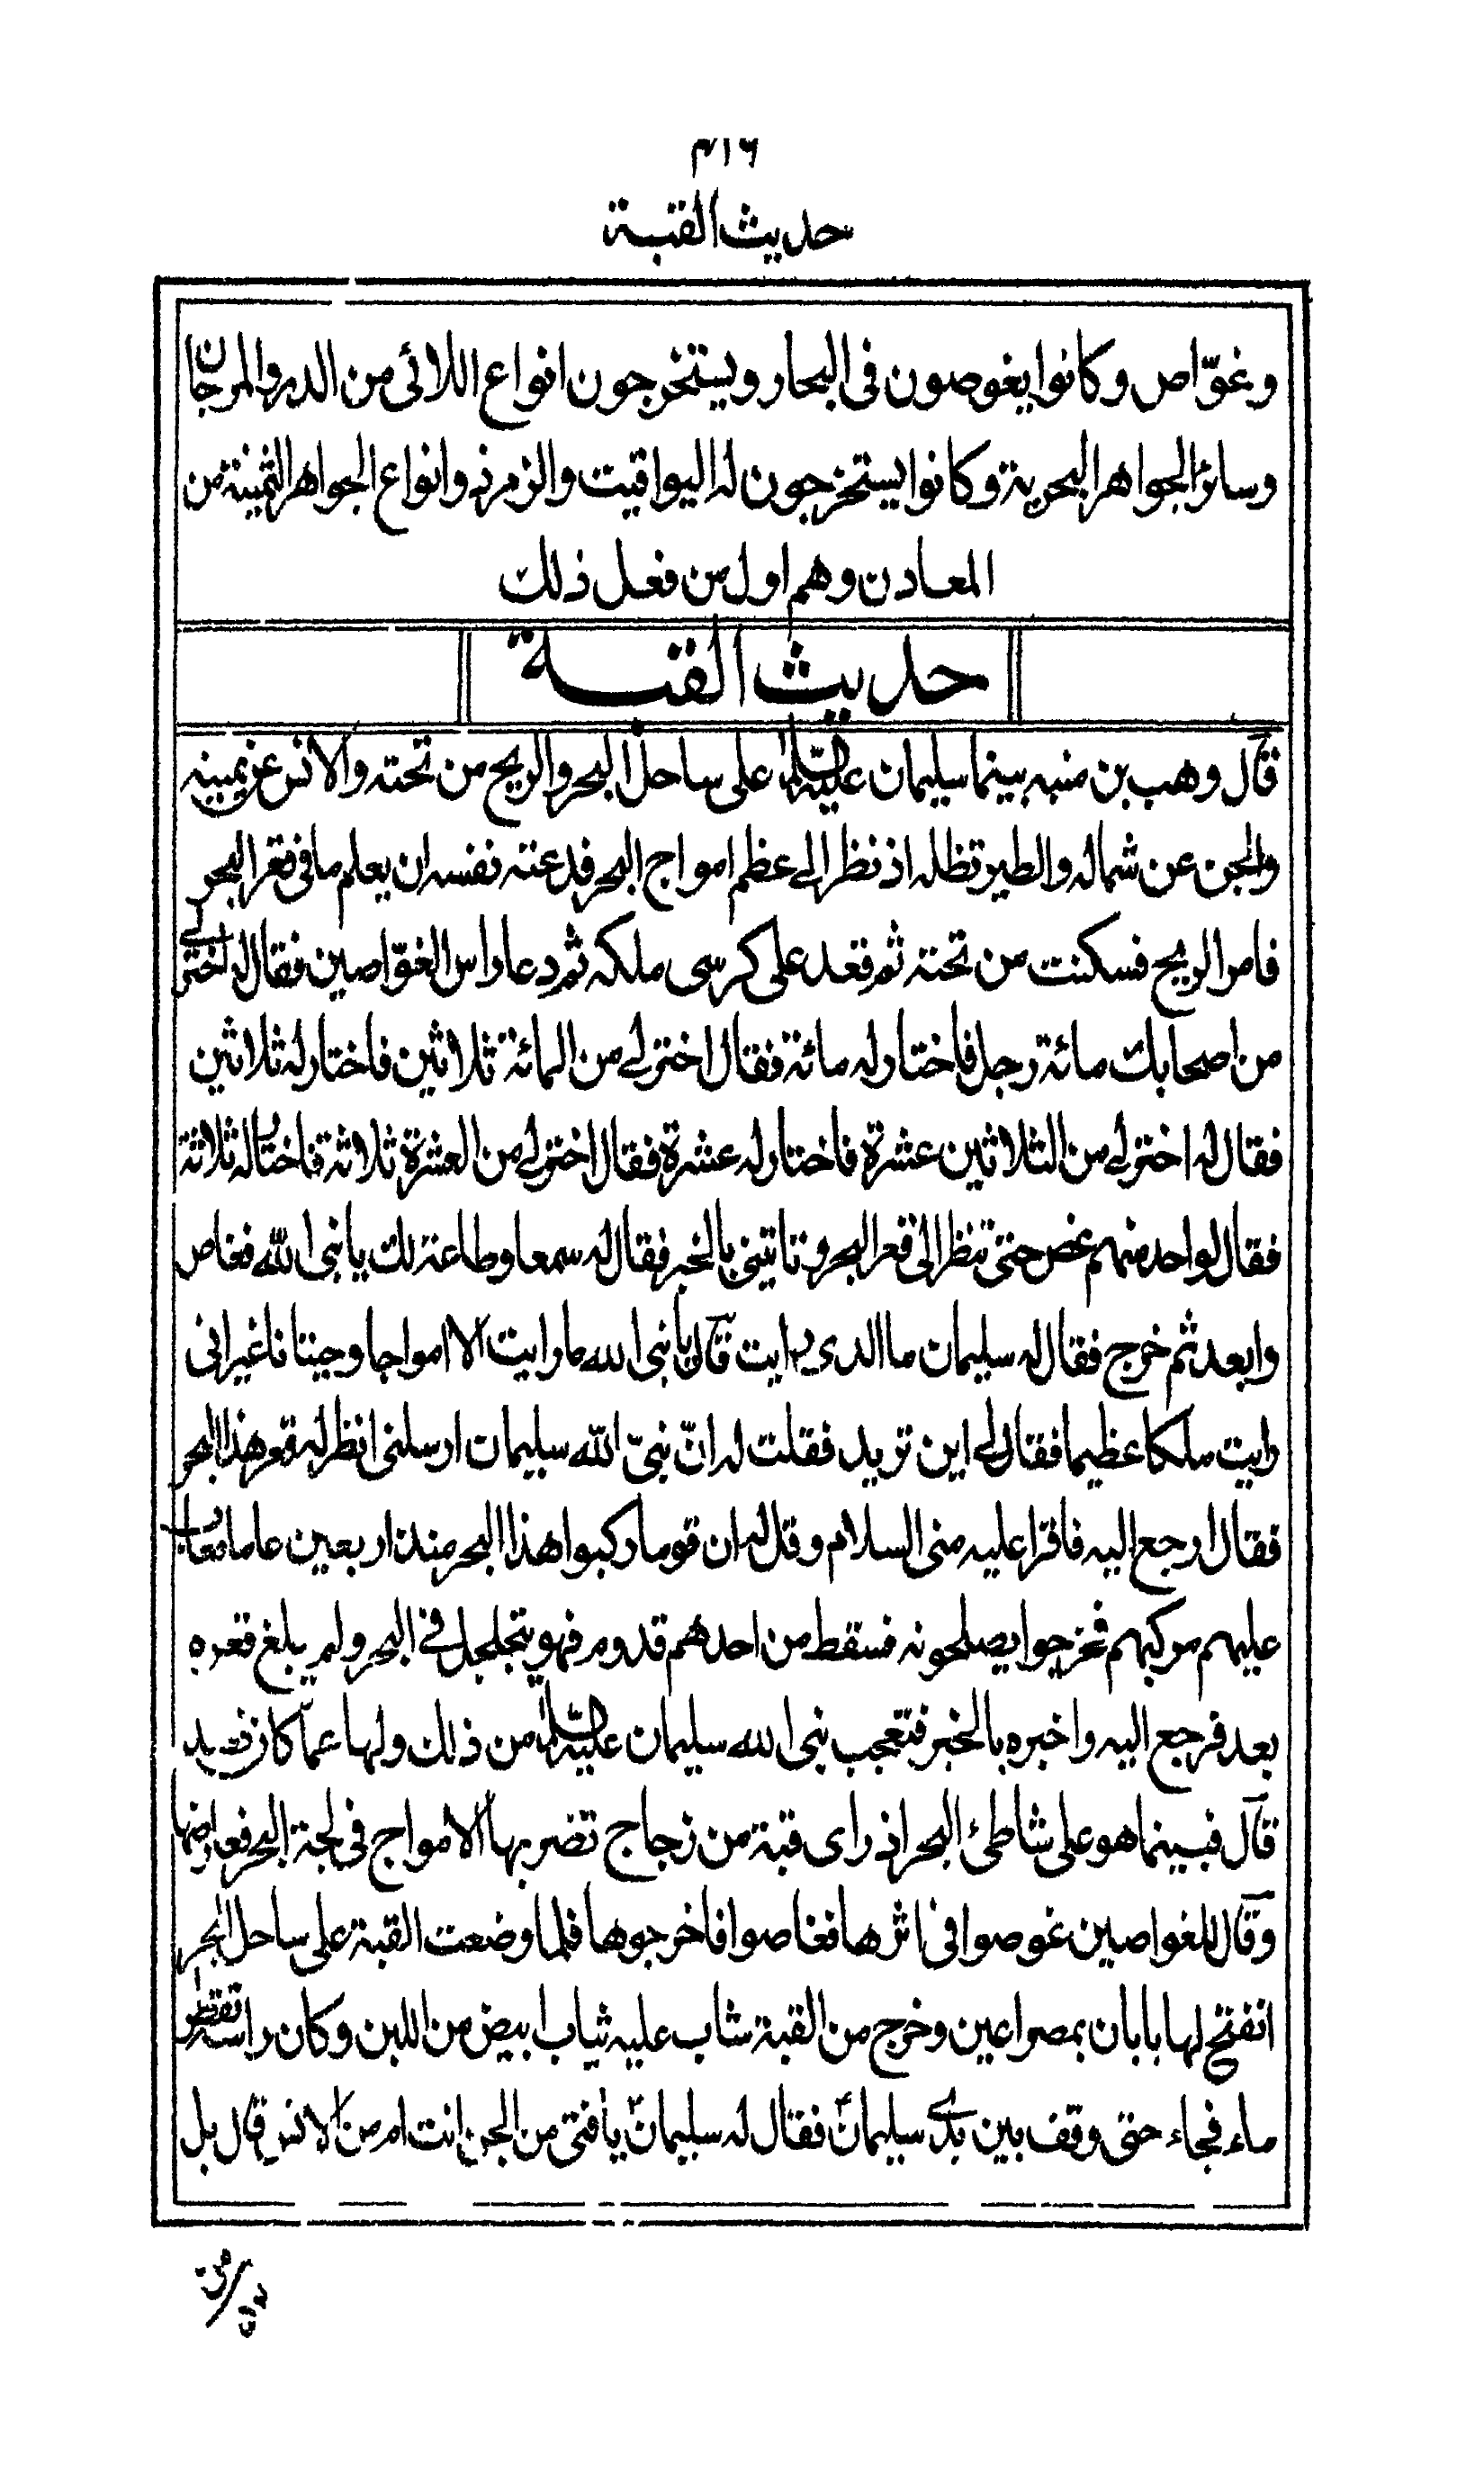 ٤١٦
حديث القبة
وغوّاص وكانوا يغوصون فى البحار ويستخرجون انواع اللائى من الدر والمرجان
وسائر الجواهر البحرية وكانوا يستخرجون له اليواقيت والزمرذ وانواع الجواهر الثمينة من
المعادن وهم اول من فعل ذلك
حديث القبة
قال وهب بن منبه بينما سليمان عليه السلام على ساحل البحر والريح من تحته والانس عن يمينه
والجن عن شماله والطير تظله اذ نظر الے عظم امواج البحر فدعته نفسه ان يعلم ما فى قعر البحر
فامر الريح فسكنت من تحته ثم قعد على كرسى ملكه ثم دعا راس الغوّاصين فقال له اختر لے
من اصحابك مائة رجل فاختار له مائة فقال اختر لے من المائة ثلاثين فاختار له ثلاثين
فقال له اختر لے من الثلاثين عشرة فاختار له عشرة فقال اختر لے من العشرة ثلاثة فاختار له ثلاثة
فقال لواحد منهم غص حتى تنظر الى قعر البحر وتاتينى بالخبر فقال له سمعا وطاعة لك يا نبى الله فغاص
وابعد ثم خرج فقال له سليمان ما الدى رايت قال يا نبى الله ما رايت الا امواجا وحيتانا غير انى
رايت ملكا عظيما فقال لے اين تريد فقلت له انّ نبىّ الله سليمان ارسلنى انظر له قعر هذا البحر
فقال ارجع اليه فاقرا عليه منى السلام وقل له ان قوما ركبوا هذا البحر منذ اربعين عاما فعاب
عليهم مركبهم فخرجوا يصلحونه فسقط من احدهم قدوم فهو يتجلجل فے البحر ولم يبلغ قعره
بعد فرجع اليه واخبره بالخبر فتعجب نبى الله سليمان عليه السلام من ذلك ولها عما كان يريد
قال فبينما هو على شاطئ البحر اذ راى قبة من زجاج تضربها الامواج فى لجة البحر فعارضها
وقال للغواصين غوصوا فى اثرها فغاصوا فاخرجوها فلما وضعت القبة على ساحل البحر
انفتح لها بابان بمصراعين وخرج من القبة شاب عليه ثياب ابيض من اللبن وكان راسه تقطر
ماء فجاء حتى وقف بين يدے سليمانؑ فقال له سليمانؑ يا فتى من الجن انت ام من الانس قال بل